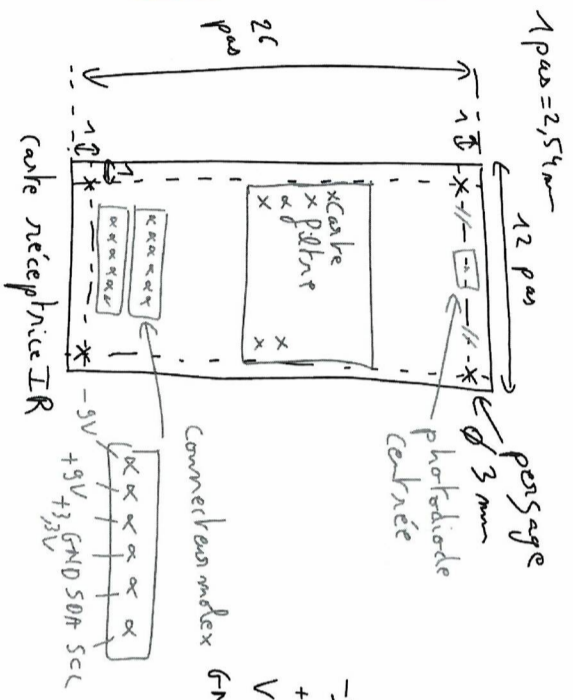 1 pas = 2,54 mm
12 pas
perçage
ø 3 mm
26
pas
1
photodiode
centrée
Carte
filtre
1
1
Connecteur molex
-9V
+9V
+3,3V
GND
SDA
SCL
Carte réceptrice IR
+
V